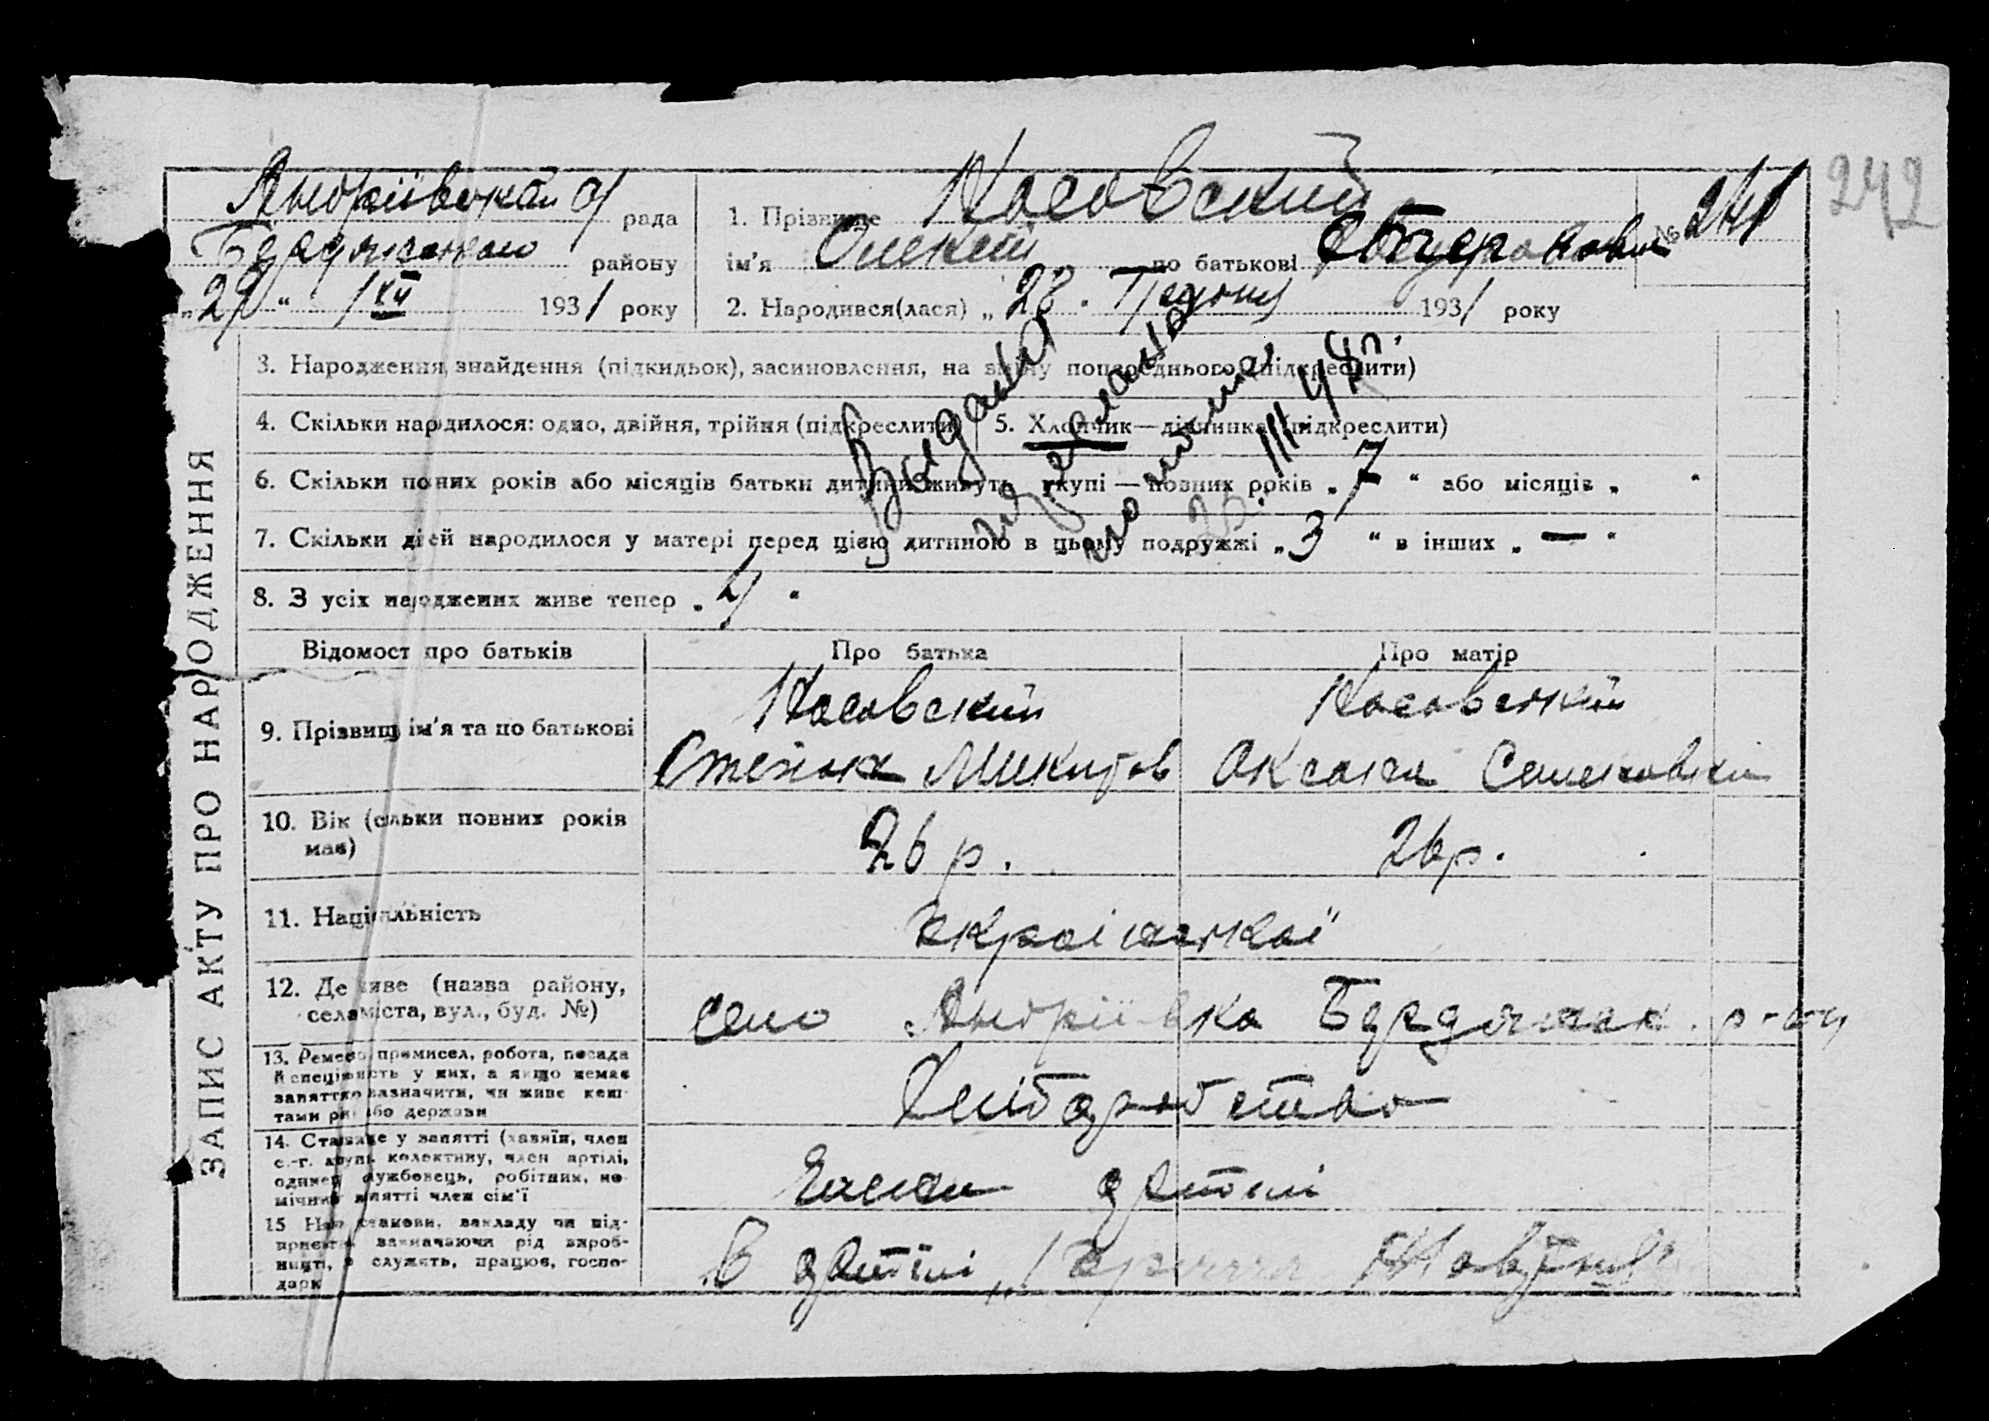 242
Андріївська с/ рада
Бердянського району
„29“ XII 1931 року
1. Прізвище Носовский
ім'я Олексій по батькові
№ 241
2. Народився(лася) „28. Грудня 1931 року
3. Народження, знайдення (підкидьок), засиновлення, на зміну попереднього (підкреслити)
4. Скільки народилося: одно, двійня, трійня (підкреслити) 5. Хлопчик—дівчинка (підкреслити)
6. Скільки повних років або місяців батьки дитини живуть укупі — повних років „7“ або місяців „ “
7. Скільки дітей народилося у матері перед цією дитиною в цьому подружжі „3“ в інших „—“
8. З усіх народжених живе тепер „4“
III 48 г.
ЗАПИС АКТУ ПРО НАРОДЖЕННЯ
Відомост про батьків Про батька Про матір
9. Прізвищ ім'я та по батькові
Носовский Носовський
Степан Микитов Оксана Семеновна
10. Вік (сільки повних років
має)
26 р. 26 р.
11. Національність
української
12. Де живе (назва району,
села міста, вул., буд. №)
село Андріївка Бердянськ. р-ну
13. Ремесо, промисел, робота, посада
й спеціяність у них, а якщо немає
заняття зазначити, чи живе кош-
тами рі або держави
Хліборобство
14. Становище у занятті (хазяїн, член
с.-г. колективу, член артілі,
службовець, робітник, по-
занятті член сім'ї
Члени артілі
15
зазначаючи рід вироб-
ництв, служить, працює, госпо-
дарк
В артілі „Червоний Жовтень“